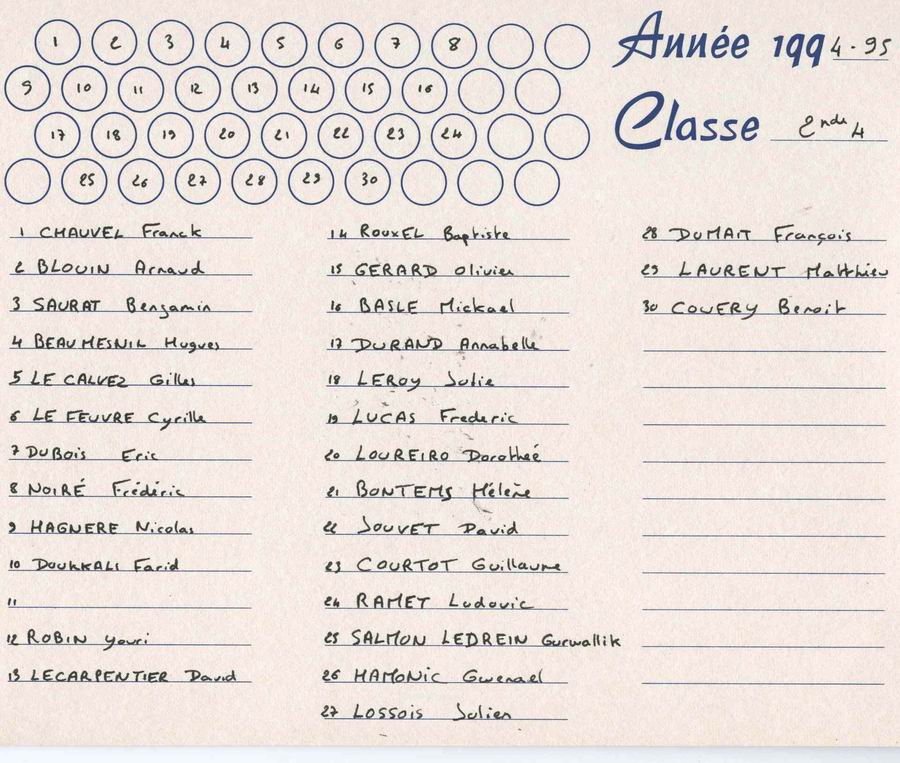 1 2 3 4 5 6 7 8
Année 1994-95
9 10 11 12 13 14 15 16
Classe 2nde 4
17 18 19 20 21 22 23 24
25 26 27 28 29 30
1 CHAUVEL Franck
2 BLOUIN Arnaud
3 SAURAT Benjamin
4 BEAUMESNIL Hugues
5 LE CALVEZ Gilles
6 LE FEUVRE Cyrille
7 DUBOIS Eric
8 NOIRÉ Frédéric
9 HAGNERE Nicolas
10 DOUKKALI Farid
11
12 ROBIN youri
13 LECARPENTIER David
14 ROUXEL Baptiste
15 GERARD Olivier
16 BASLE Mickael
17 DURAND Annabelle
18 LEROY Julie
19 LUCAS Frederic
20 LOUREIRO Dorotheé
21 BONTEMS Hélène
22 JOUVET David
23 COURTOT Guillaume
24 RAMET Ludovic
25 SALMON LEDREIN Gurwallik
26 HAMONIC Gwenael
27 LOSSOIS Julien
28 DUMAIT François
29 LAURENT Matthieu
30 COUERY Benoit